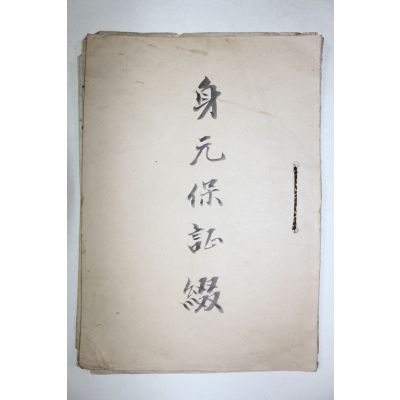 身元保証綴